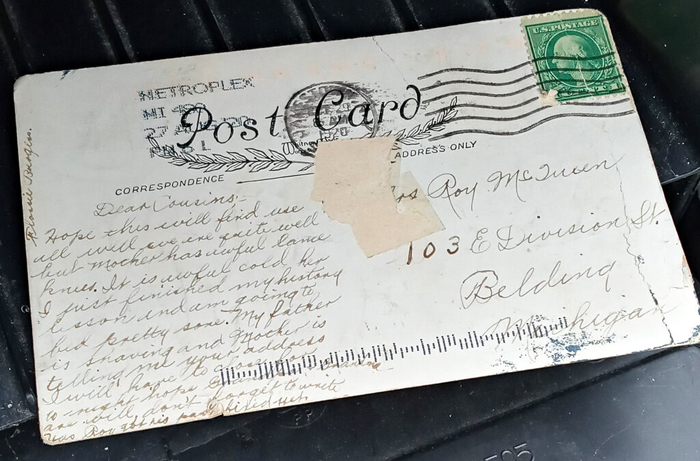 U.S. POSTAGE
METROPLEX
MI 480
27
PM 5 L
Post Card
1920
ADDRESS ONLY
CORRESPONDENCE
Dear Cousins;-
Hope this will find use
all well we are quite well
but Mother has awful lame
knees. It is awful cold her
I just finished my history
lesson and am going to
bed pretty sone. My father
is shaving and Mother is
telling me your address
I will have to close for
to night hope
are will don't forget to write
Has Roy got his yet
Mrs Roy McTwen
103 E Division St
Belding
Michigan